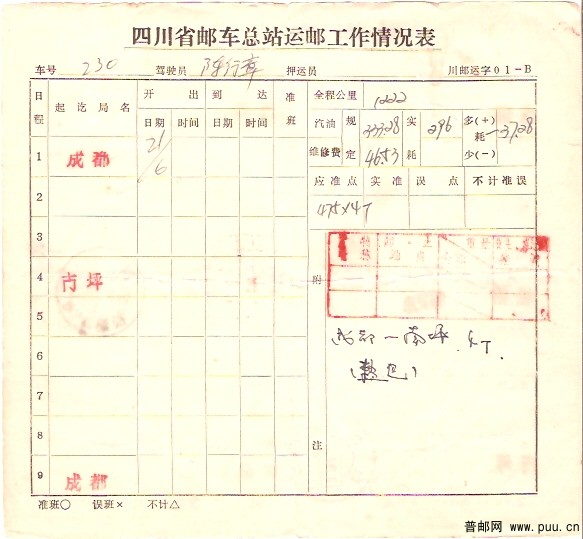 四川省邮车总站运邮工作情况表
车号 230 驾驶员 押运员 川邮运字01-B
日程 起讫局名 开出 到达 准班 全程公里 1222
日期 时间 日期 时间 汽油 规 333.28 实 296 多(+) 耗 少(-) -37.28
维修费 定 46.53 耗
1 成都 21/6 应准点 实准 误点 不计准误
2 475×4T
3
4 坪 附
5 成都-南坪 4T.
6
7
8 注
9 成都
准班○ 误班× 不计△
普邮网 www.puu.cn